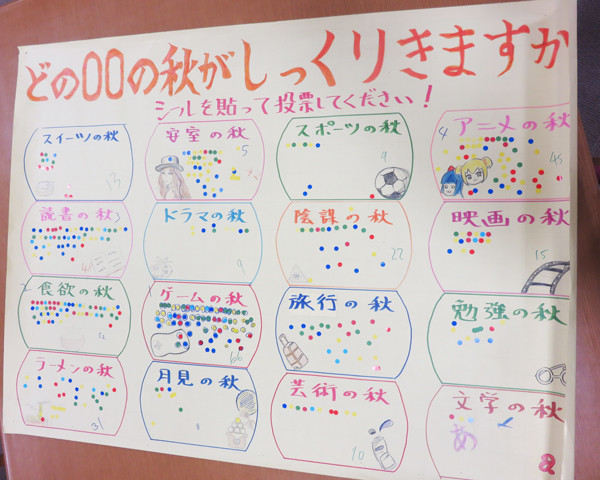 どの〇〇の秋がしっくりきますか
シールを貼って投票してください!
スイーツの秋
13
安室の秋
5
スポーツの秋
9
4
アニメの秋
45
読書の秋
3
ドラマの秋
9
陰謀の秋
22
映画の秋
15
2
食欲の秋
1
ゲームの秋
66
旅行の秋
勉強の秋
ラーメンの秋
31
月見の秋
芸術の秋
10
文学の秋
あ